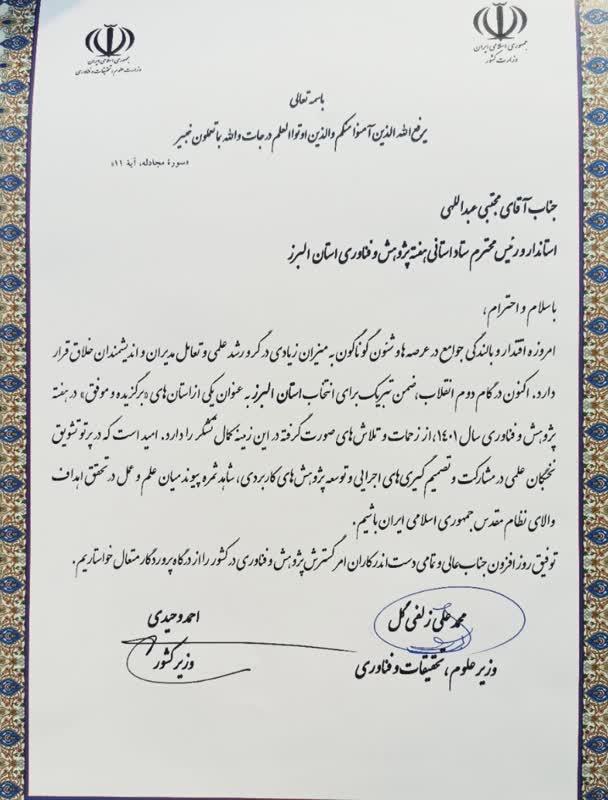 جمهوری اسلامی ایران
وزارت کشور
جمهوری اسلامی ایران
وزارت علوم، تحقیقات و فناوری
باسمه تعالی
یرفع الله الذین آمنوا منکم والذین اوتوا العلم درجات والله بما تعملون خبیر
«سورهٔ مجادله، آیهٔ ۱۱»
جناب آقای مجتبی عبداللهی
استاندار و رئیس محترم ستاد استانی هفته پژوهش و فناوری استان البرز
با سلام و احترام،
امروزه اقتدار و بالندگی جوامع در عرصه ها و شئون گوناگون به میزان زیادی در گرو رشد علمی و تعامل مدیران و اندیشمندان خلاق قرار
دارد. اکنون در گام دوم انقلاب، ضمن تبریک برای انتخاب استان البرز به عنوان یکی از استان های «برگزیده و موفق» در هفته
پژوهش و فناوری سال ۱۴۰۱، از زحمات و تلاش های صورت گرفته در این زمینه کمال تشکر را دارد. امید است که در پرتو تشویق
نخبگان علمی در مشارکت و تصمیم گیری های اجرایی و توسعه پژوهش های کاربردی، شاهد ثمره پیوند میان علم و عمل در تحقق اهداف
والای نظام مقدس جمهوری اسلامی ایران باشیم.
توفیق روز افزون جناب عالی و تمامی دست اندرکاران امر گسترش پژوهش و فناوری در کشور را از درگاه پروردگار متعال خواستاریم.
محمد علی زلفی گل
وزیر علوم، تحقیقات و فناوری
احمد وحیدی
وزیر کشور